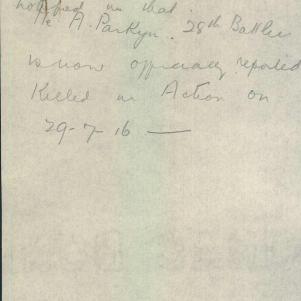 notified us that
Pte A. Parkyn. 28th Battn
is now officially reported
Killed in Action on
29-7-16 —